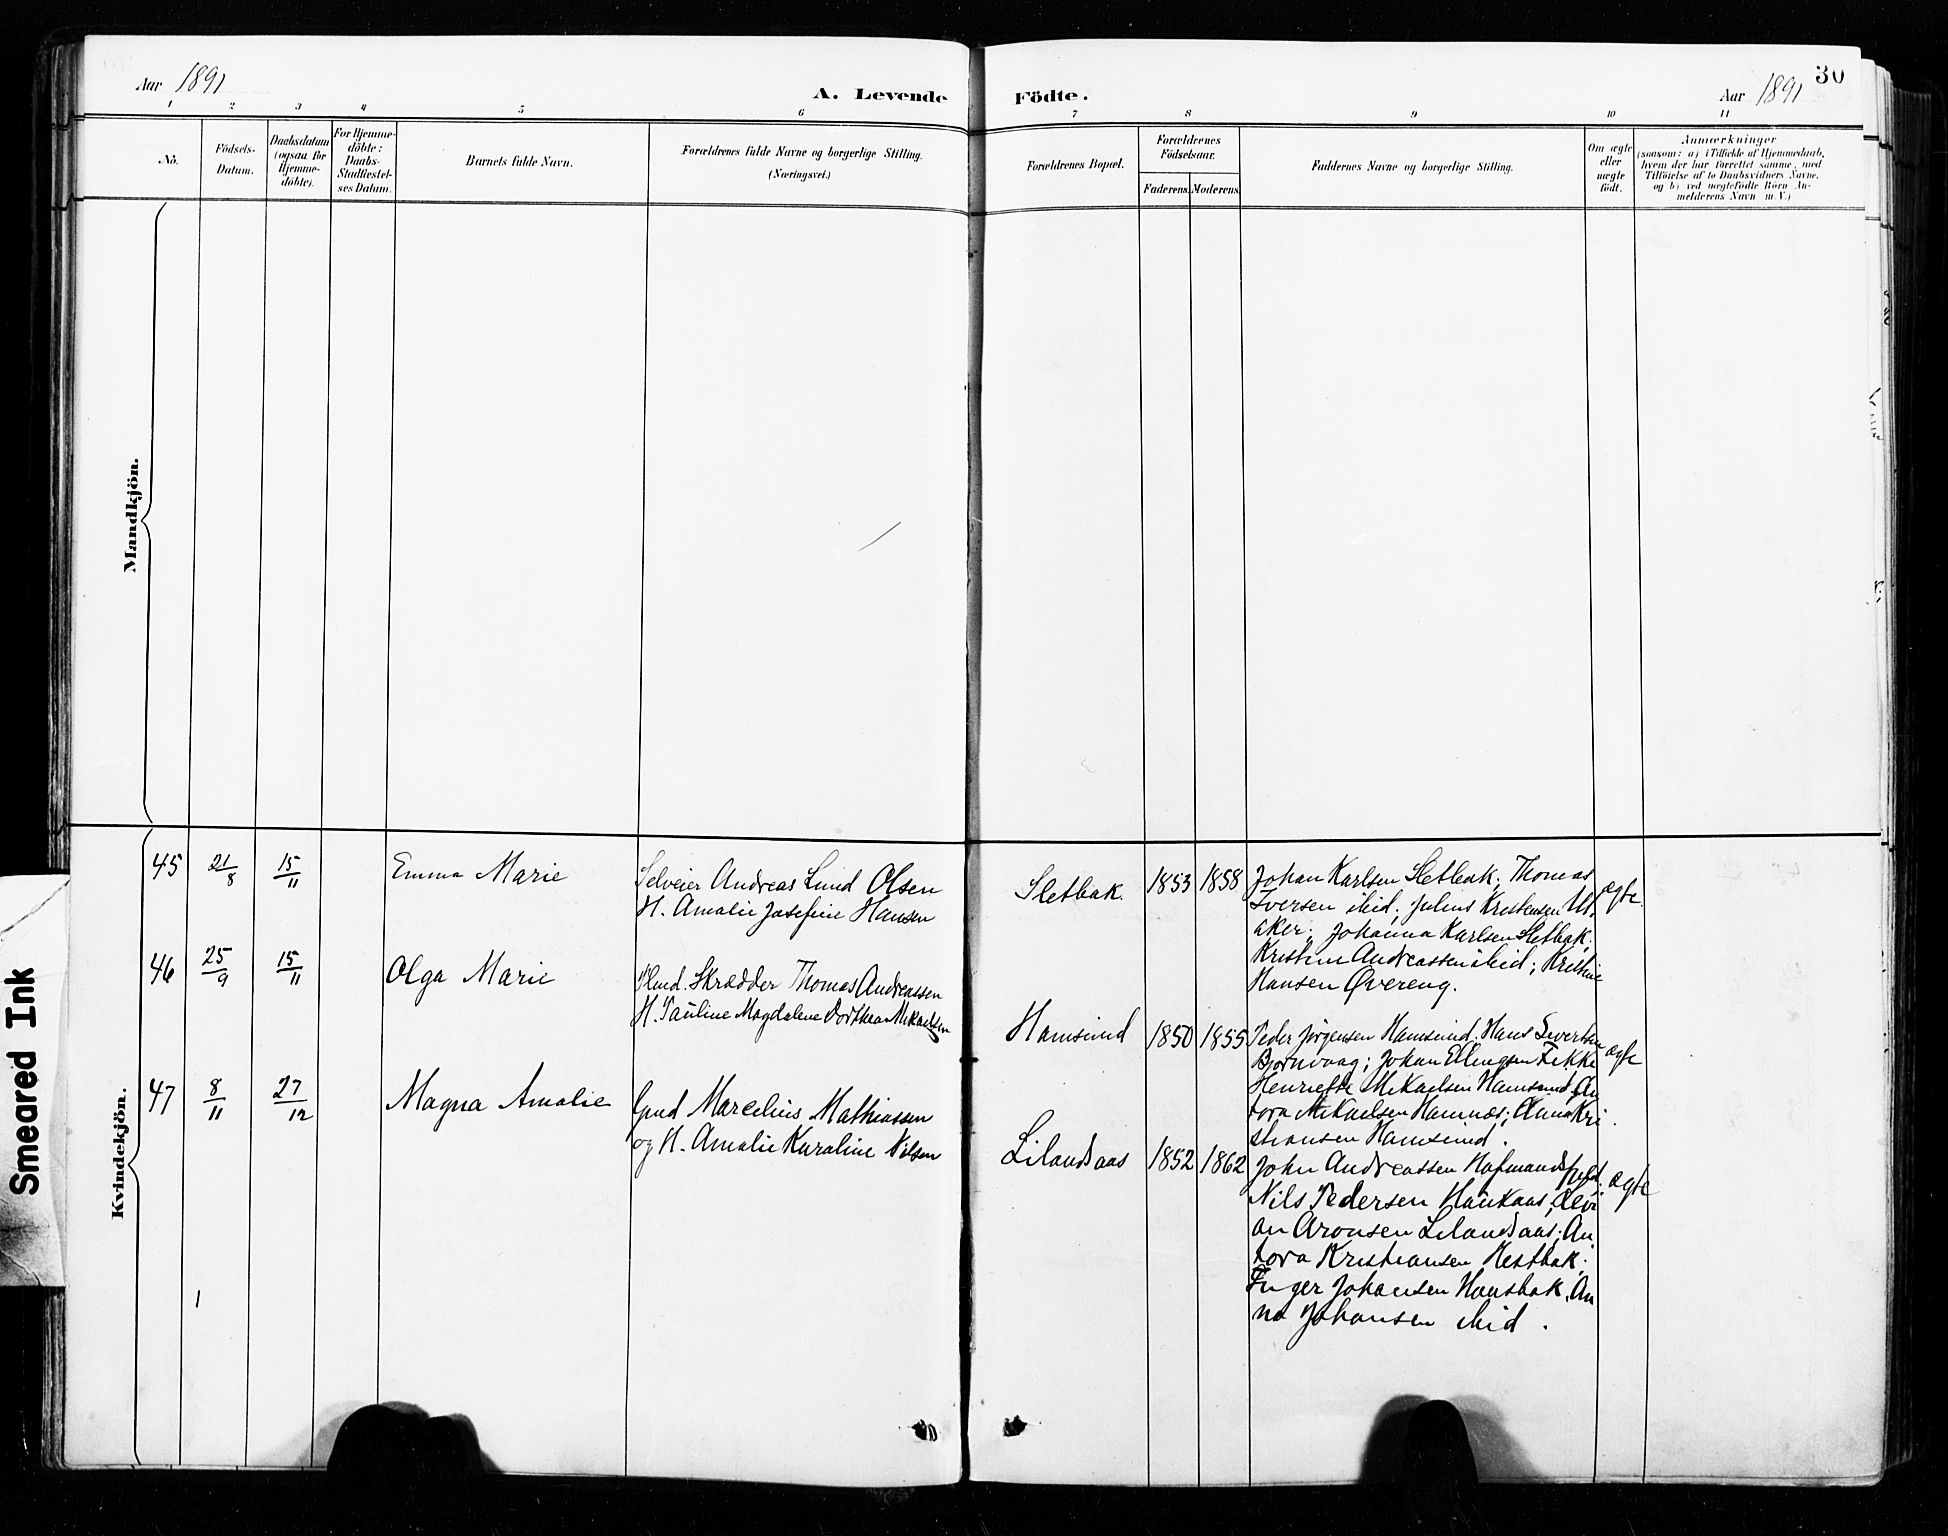 Aar 1891
A. Levende
Födte.
Aar 1891
30
1 2 3 4 5 6 7 8 9 10 11
No.
Födsels-
Datum.
Daabsdatum
(ogsaa for
Hjemme-
döbte).
For Hjemme-
döbte:
Daabs-
Stadfæstel-
ses Datum.
Barnets fulde Navn.
Forældrenes fulde Navne og borgerlige Stilling.
(Næringsvei.)
Forældrenes Bopæl.
Forældrenes
Födselsaar.
Faderens. Moderens.
Faddernes Navne og borgerlige Stilling.
Om ægte
eller
uægte
födt.
Anmærkninger
(saasom: a) i Tilfælde af Hjemmedaab,
hvem der har forrettet samme, med
Tilföielse af to Daabsvidners Navne,
og b) ved uægtefödte Börn An-
melderens Navn m. V.)
Mandkjön.
Kvindekjön.
Smeared Ink
45 21/8 15/11 Emma Marie
Selveier Andreas Lund Olsen
H. Amalie Josefine Hansen
Sletbak. 1853 1858
Johan Karlsen Sletbak; Thomas
Iversen ibid; Julius Kristensen Ut-
aker; Johanna Karlsen Sletbak;
Kristine Andreassen ibid; Kristine
Hansen Øvereng.
ægte.
46 25/9 15/11 Olga Marie
Skrædder Thomas Andreassen
H. Pauline Magdalene Dorthea Mikaelsen
Hamsund 1850 1855
Peder Jørgensen Hamsund; Hans Sivertsen
Bjørnvaag; Johan Ellingsen
Henriette Mikaelsen Hamsund; An
tora Mikaelsen Hamnæs; Anna Kri
stiansen Hamsund.
ægte
47 8/11 27/12 Magna Amalie
Gmd Marcelius Mathiassen
og H. Amalie Karoline Nilsen
Lilandsaas 1852 1862
John Andreassen
Nils Pedersen Haukaas;
an Aronsen Lilandsaas; An
tora Kristiansen Restbak;
Inger Johansen Hansbak; An
na Johansen ibid.
ægte